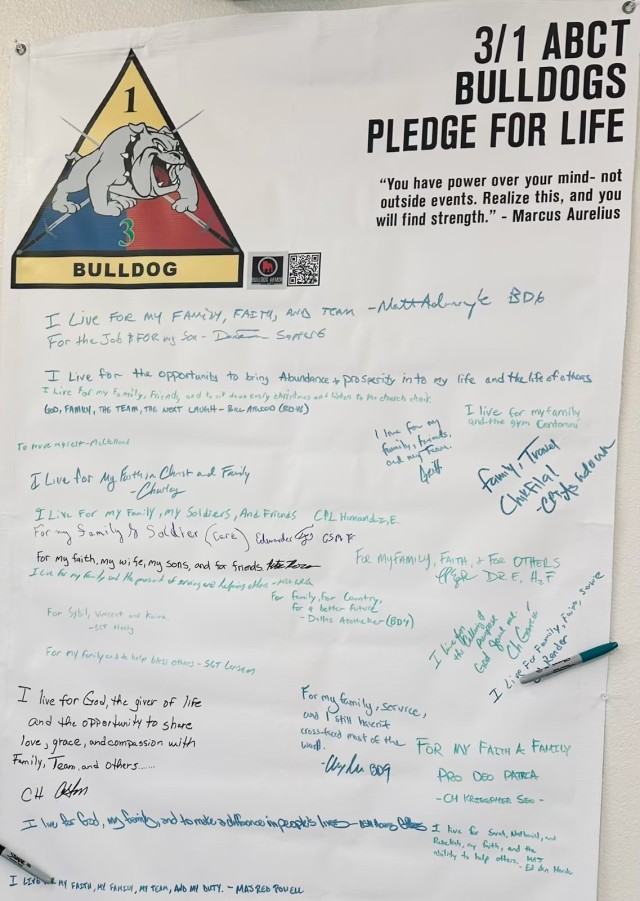 3/1 ABCT
BULLDOGS
PLEDGE FOR LIFE
"You have power over your mind- not
outside events. Realize this, and you
will find strength." - Marcus Aurelius
1
3
BULLDOG
I LIVE FOR MY FAMILY, FAITH, AND TEAM - Matt BD6
For the Job & FOR my Son - Sapper 6
I Live for the opportunity to bring Abundance + prosperity into my life and the life of others
I Live for my Family, Friends, and to sit down every christmas and listen to the church choir.
GOD, FAMILY, THE TEAM, THE NEXT LAUGH - BILL ATWOOD (BDHS)
I live for my family
and the gym
To prove myself -
I live for my
family, friends,
and my team.
Family, Travel
ChikFila!
I Live for My Faith in Christ and Family
- Charley
I Live For My Family, my Soldiers, And Friends CPL Hernandez, E.
For my Family & Soldier (Care) CSM
For my faith, my wife, my sons, and for friends.
I live for my family and the pursuit of serving and helping others -
FOR MY FAMILY, FAITH, + FOR OTHERS
DR E, H, F
For Family, For Country,
for a better future
- Dallas (BD4)
For Sybil, Vincent and
- SGT
I live for
the calling &
purpose
God gave me.
Ch Garcia
I Live For Family, Faith,
For my family and to help bless others - SGT
I live for God, the giver of life
and the opportunity to share
love, grace, and compassion with
Family, Team, and others......
CH
For my family, service,
and I still haven't
cross-faced most of the
world.
BD9
FOR MY FAITH & FAMILY
PRO DEO PATRIA
- CH KRISTOPHER SEO -
I live for God, my family, and to make a difference in people's lives -
I live for Sarah, Nathaniel, and
Rebekah, my faith, and the
ability to help others. MAJ
I LIVE FOR MY FAITH, MY FAMILY, MY TEAM, AND MY DUTY. - MAJ RED POWELL